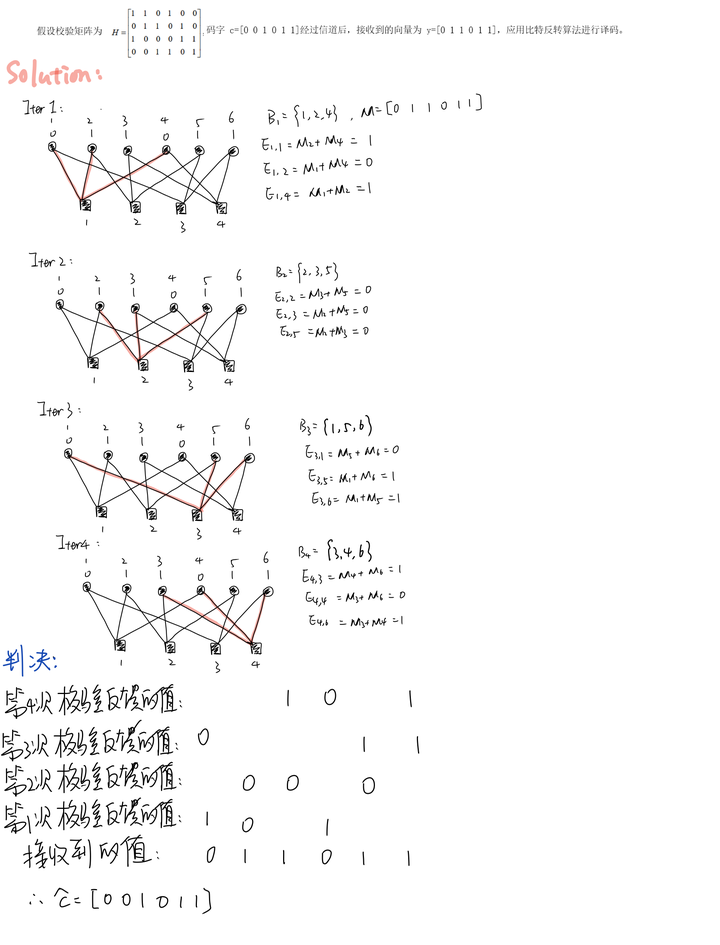 假设校验矩阵为 H = [1 1 0 1 0 0
0 1 1 0 1 0
1 0 0 0 1 1
0 0 1 1 0 1], 码字 c=[0 0 1 0 1 1]经过信道后，接收到的向量为 y=[0 1 1 0 1 1]，应用比特反转算法进行译码。
Solution:
Iter 1:
1 2 3 4 5 6
0 1 1 0 1 1
1 2 3 4
B₁={1,2,4}, M=[0 1 1 0 1 1]
E₁,₁=M₂+M₄ = 1
E₁,₂=M₁+M₄ = 0
E₁,₄= M₁+M₂ =1
Iter 2:
1 2 3 4 5 6
0 1 1 0 1 1
1 2 3 4
B₂={2,3,5}
E₂,₂ =M₃+M₅ = 0
E₂,₃ =M₂+M₅ = 0
E₂,₅ =M₂+M₃ = 0
Iter 3:
1 2 3 4 5 6
0 1 1 0 1 1
1 2 3 4
B₃={1,5,6}
E₃,₁=M₅+M₆=0
E₃,₅=M₁+M₆ =1
E₃,₆= M₁+M₅ =1
Iter4:
1 2 3 4 5 6
0 1 1 0 1 1
1 2 3 4
B₄= {3,4,6}
E₄,₃ =M₄+ M₆ = 1
E₄,₄ =M₃+M₆ = 0
E₄,₆ =M₃+M₄ =1
判决:
第4次校验反馈的值: 1 0 1
第3次校验反馈的值: 0 1 1
第2次校验反馈的值: 0 0 0
第1次校验反馈的值: 1 0 1
接收到的值: 0 1 1 0 1 1
∴ ĉ=[0 0 1 0 1 1]